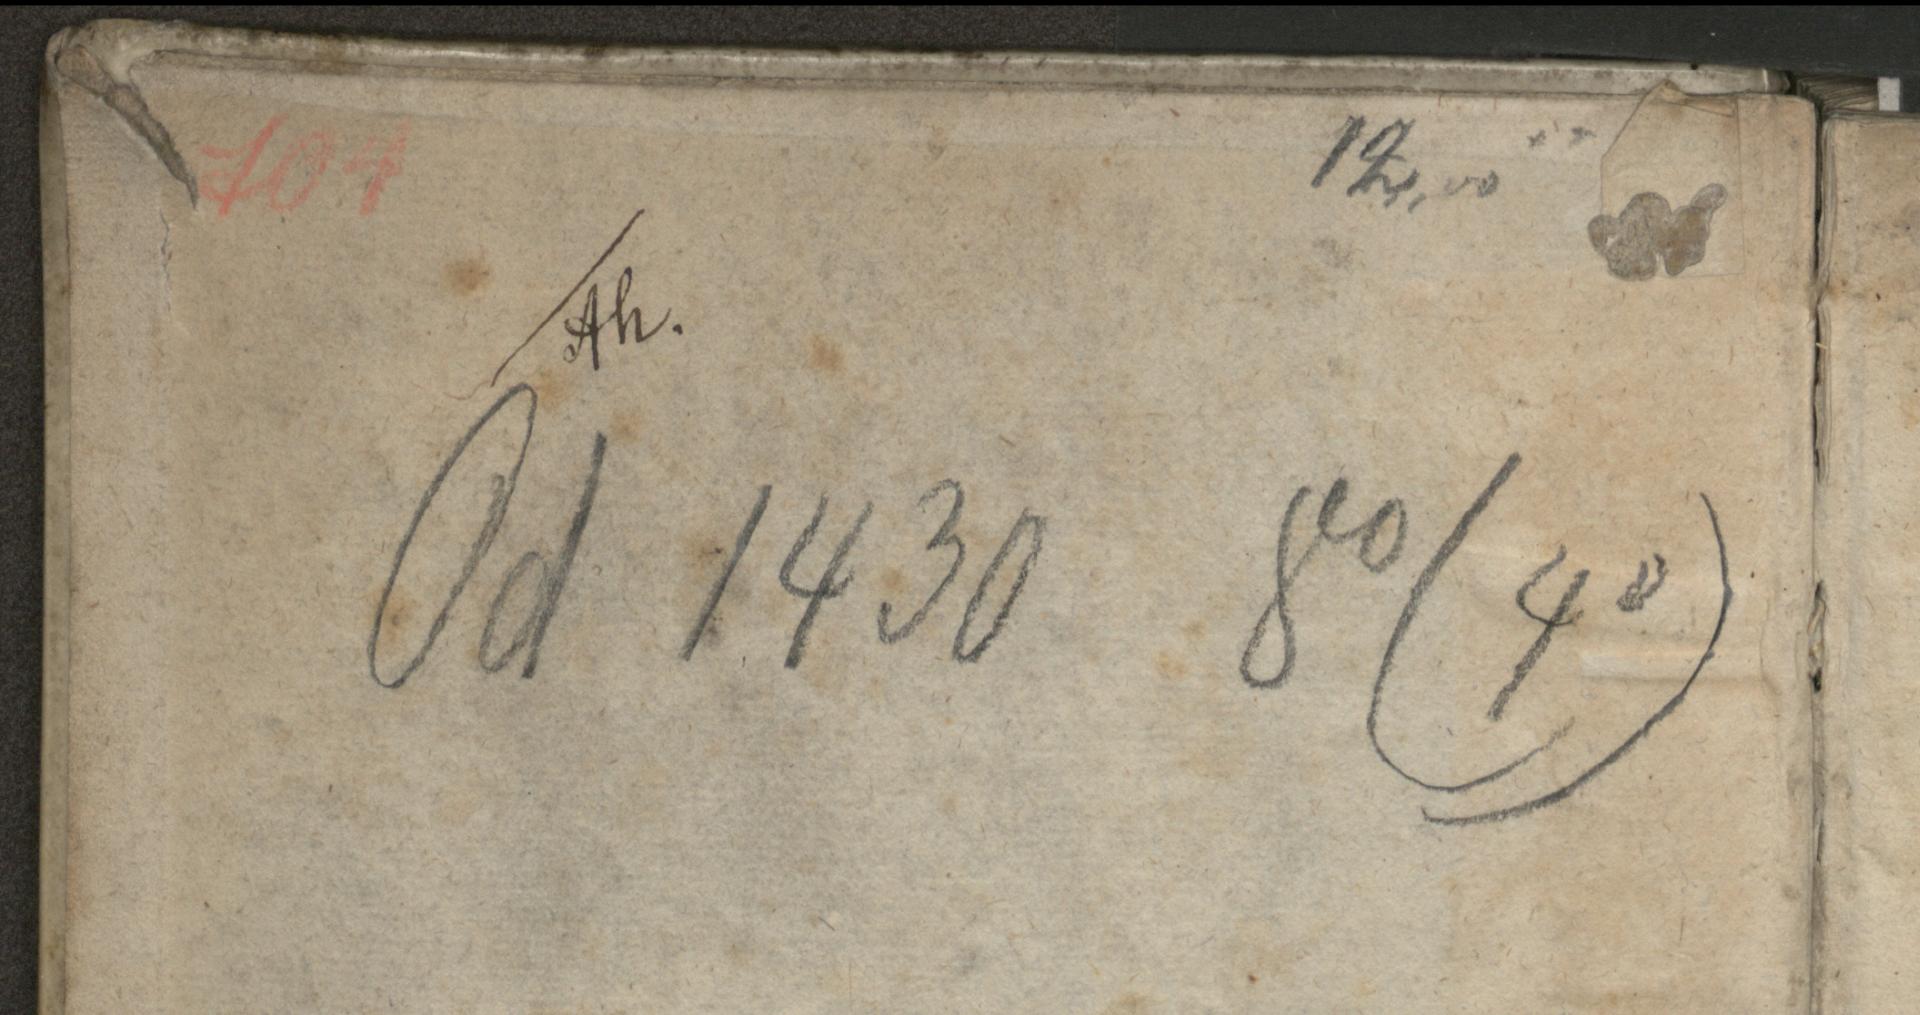 704
12,00
Ah.
Od 1430 8vo (4°)